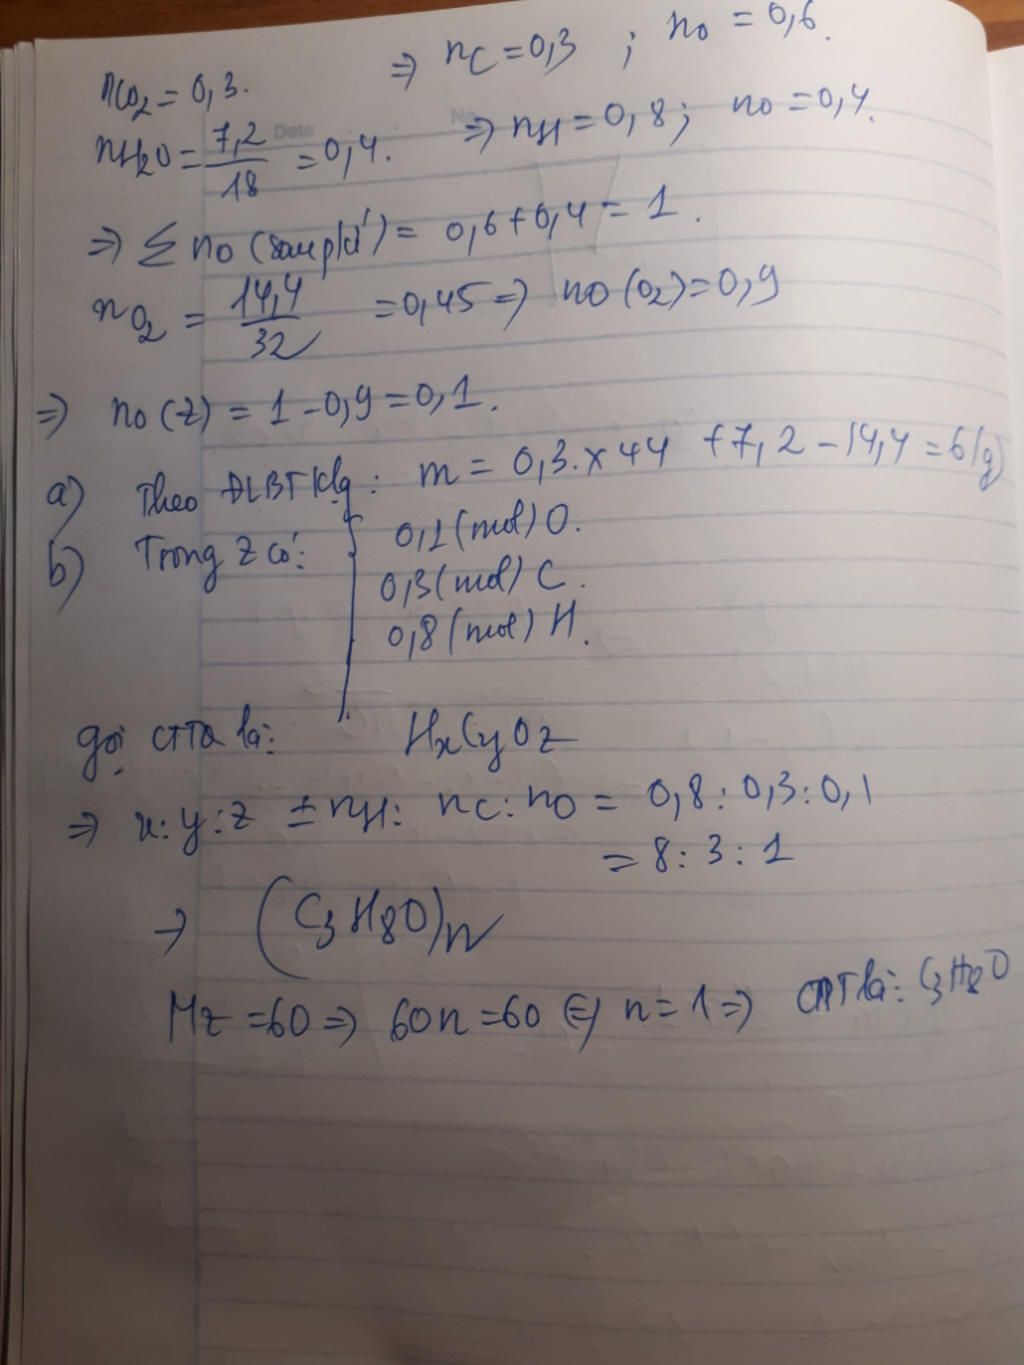 nCO2 = 0,3. ⇒ nC = 0,3 ; nO = 0,6.
nH2O = 7,2/18 = 0,4. ⇒ nH = 0,8; nO = 0,4.
⇒ Σ nO (sau pứ) = 0,6 + 0,4 = 1.
nO2 = 14,4/32 = 0,45 ⇒ nO (O2) = 0,9
⇒ nO (Z) = 1 - 0,9 = 0,1.
a) Theo ĐLBTKlg: m = 0,3 . x 44 + 7,2 - 14,4 = 6 (g)
b) Trong Z có: { 0,1 (mol) O.
0,3 (mol) C.
0,8 (mol) H.
gọi CTTQ là: HxCyOz
⇒ x : y : z = nH : nC : nO = 0,8 : 0,3 : 0,1
= 8 : 3 : 1
→ (C3H8O)n
Mz = 60 ⇒ 60n = 60 ⇔ n = 1 ⇒ CTPT là: C3H8O
Date
No